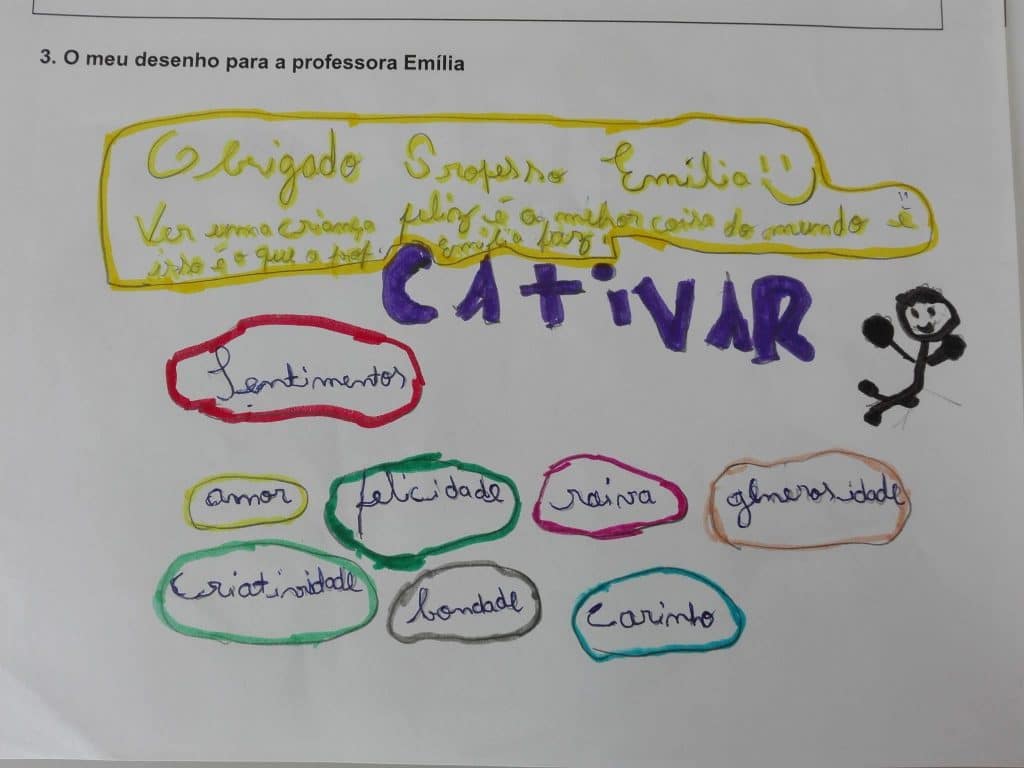 3. O meu desenho para a professora Emília
Obrigado Professo Emília
Ver uma criança feliz é a melhor coisa do mundo é
isso é o que a prof. Emília faz.
CAtiVAR
Sentimentos
amor felicidade raiva generosidade
Criatividade bondade Carinho